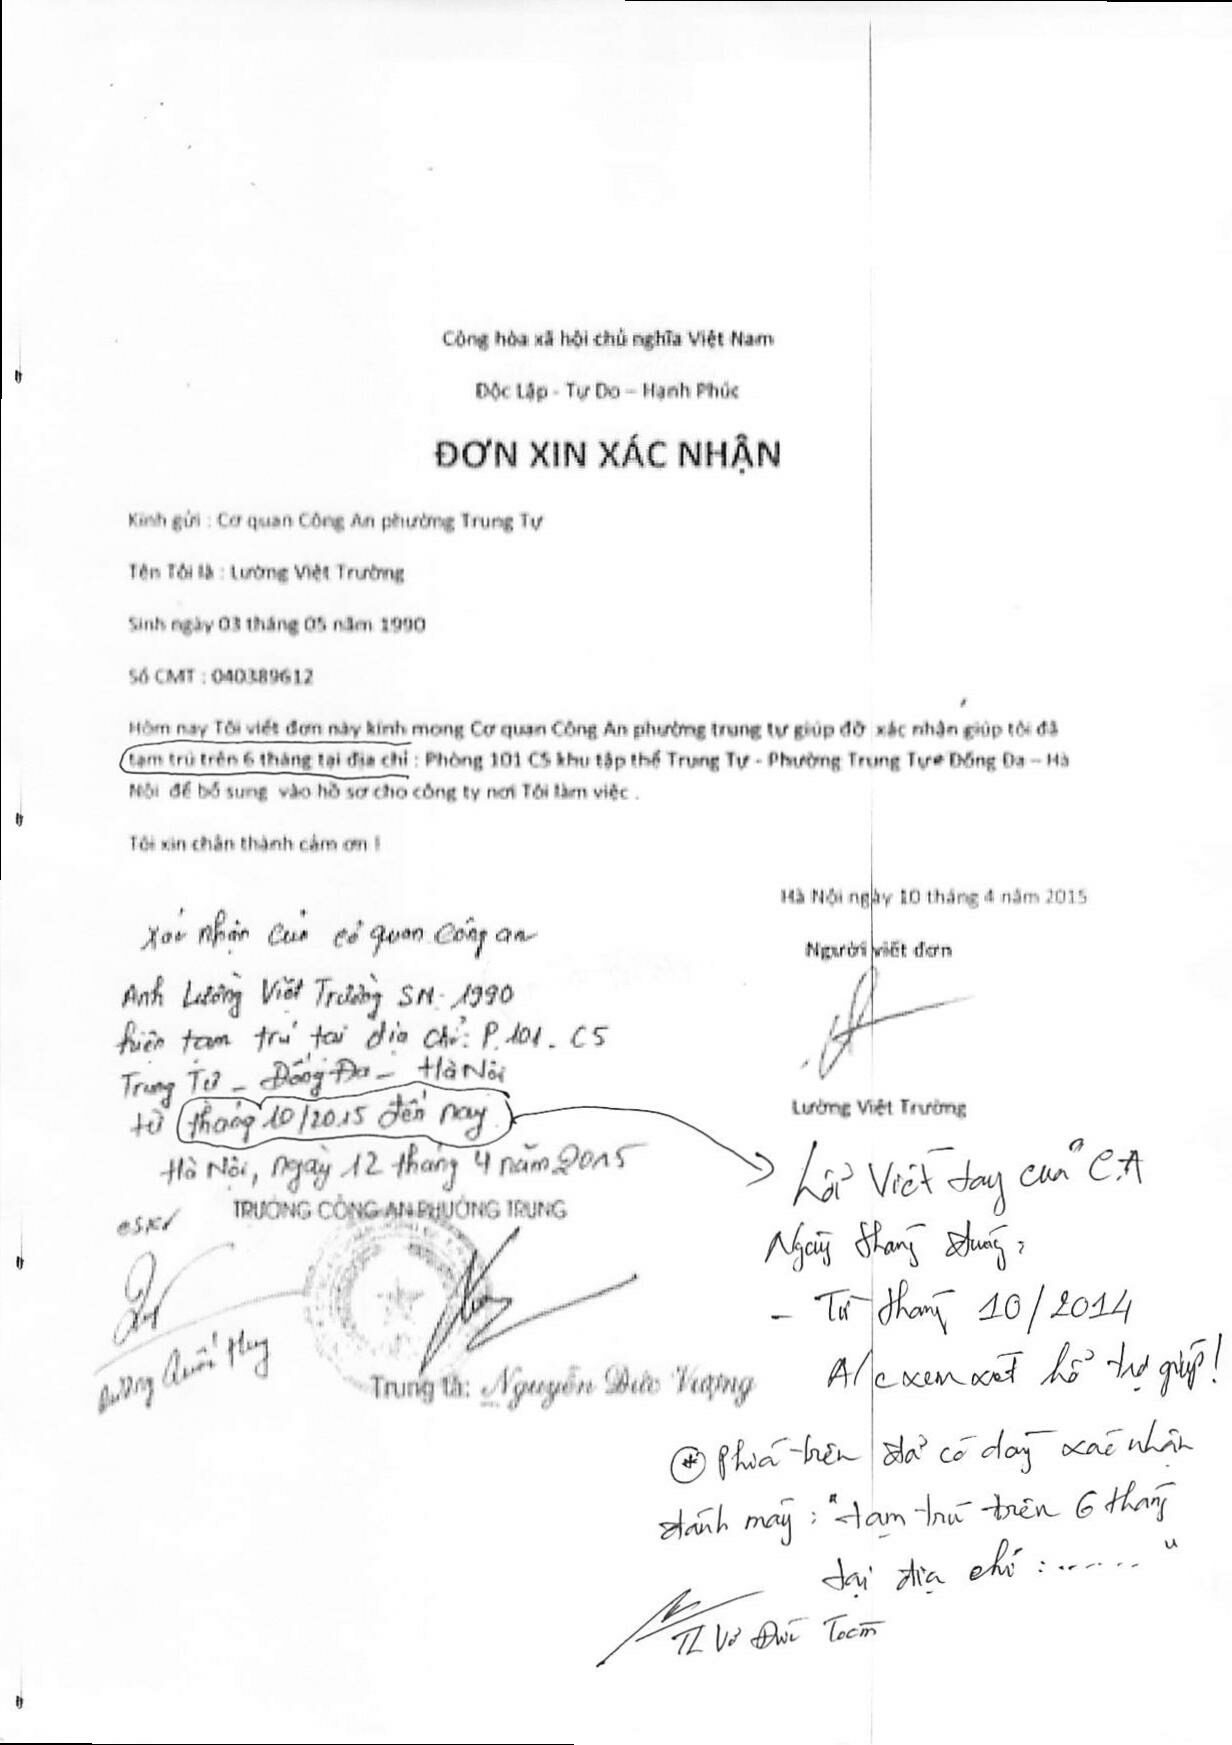 Cộng hòa xã hội chủ nghĩa Việt Nam
Độc Lập - Tự Do – Hạnh Phúc
ĐƠN XIN XÁC NHẬN
Kính gửi : Cơ quan Công An phường Trung Tự
Tên Tôi là : Lường Việt Trường
Sinh ngày 03 tháng 05 năm 1990
Số CMT : 040389612
Hôm nay Tôi viết đơn này kính mong Cơ quan Công An phường trung tự giúp đỡ xác nhận giúp tôi đã
tạm trú trên 6 tháng tại địa chỉ : Phòng 101 C5 khu tập thể Trung Tự - Phường Trung Tự Đống Đa – Hà
Nội để bổ sung vào hồ sơ cho công ty nơi Tôi làm việc .
Tôi xin chân thành cảm ơn !
Hà Nội ngày 10 tháng 4 năm 2015
Người viết đơn
Lường Việt Trường
Xác nhận của cơ quan công an
Anh Lường Việt Trường SN: 1990
hiện tạm trú tại địa chỉ: P.101. C5
Trung Tự – Đống Đa – Hà Nội
từ tháng 10/2015 đến nay
Hà Nội, ngày 12 tháng 4 năm 2015
TRƯỞNG CÔNG AN PHƯỜNG TRUNG
Quốc Huy
Trung tá: Nguyễn Đức Vượng
Lỗi viết tay của C.A
Ngày tháng đúng:
- Từ tháng 10/2014
A/c xem xét hỗ trợ giúp!
* Phía trên đã có dòng xác nhận
đánh máy: "tạm trú trên 6 tháng
tại địa chỉ : ...... "
Đức